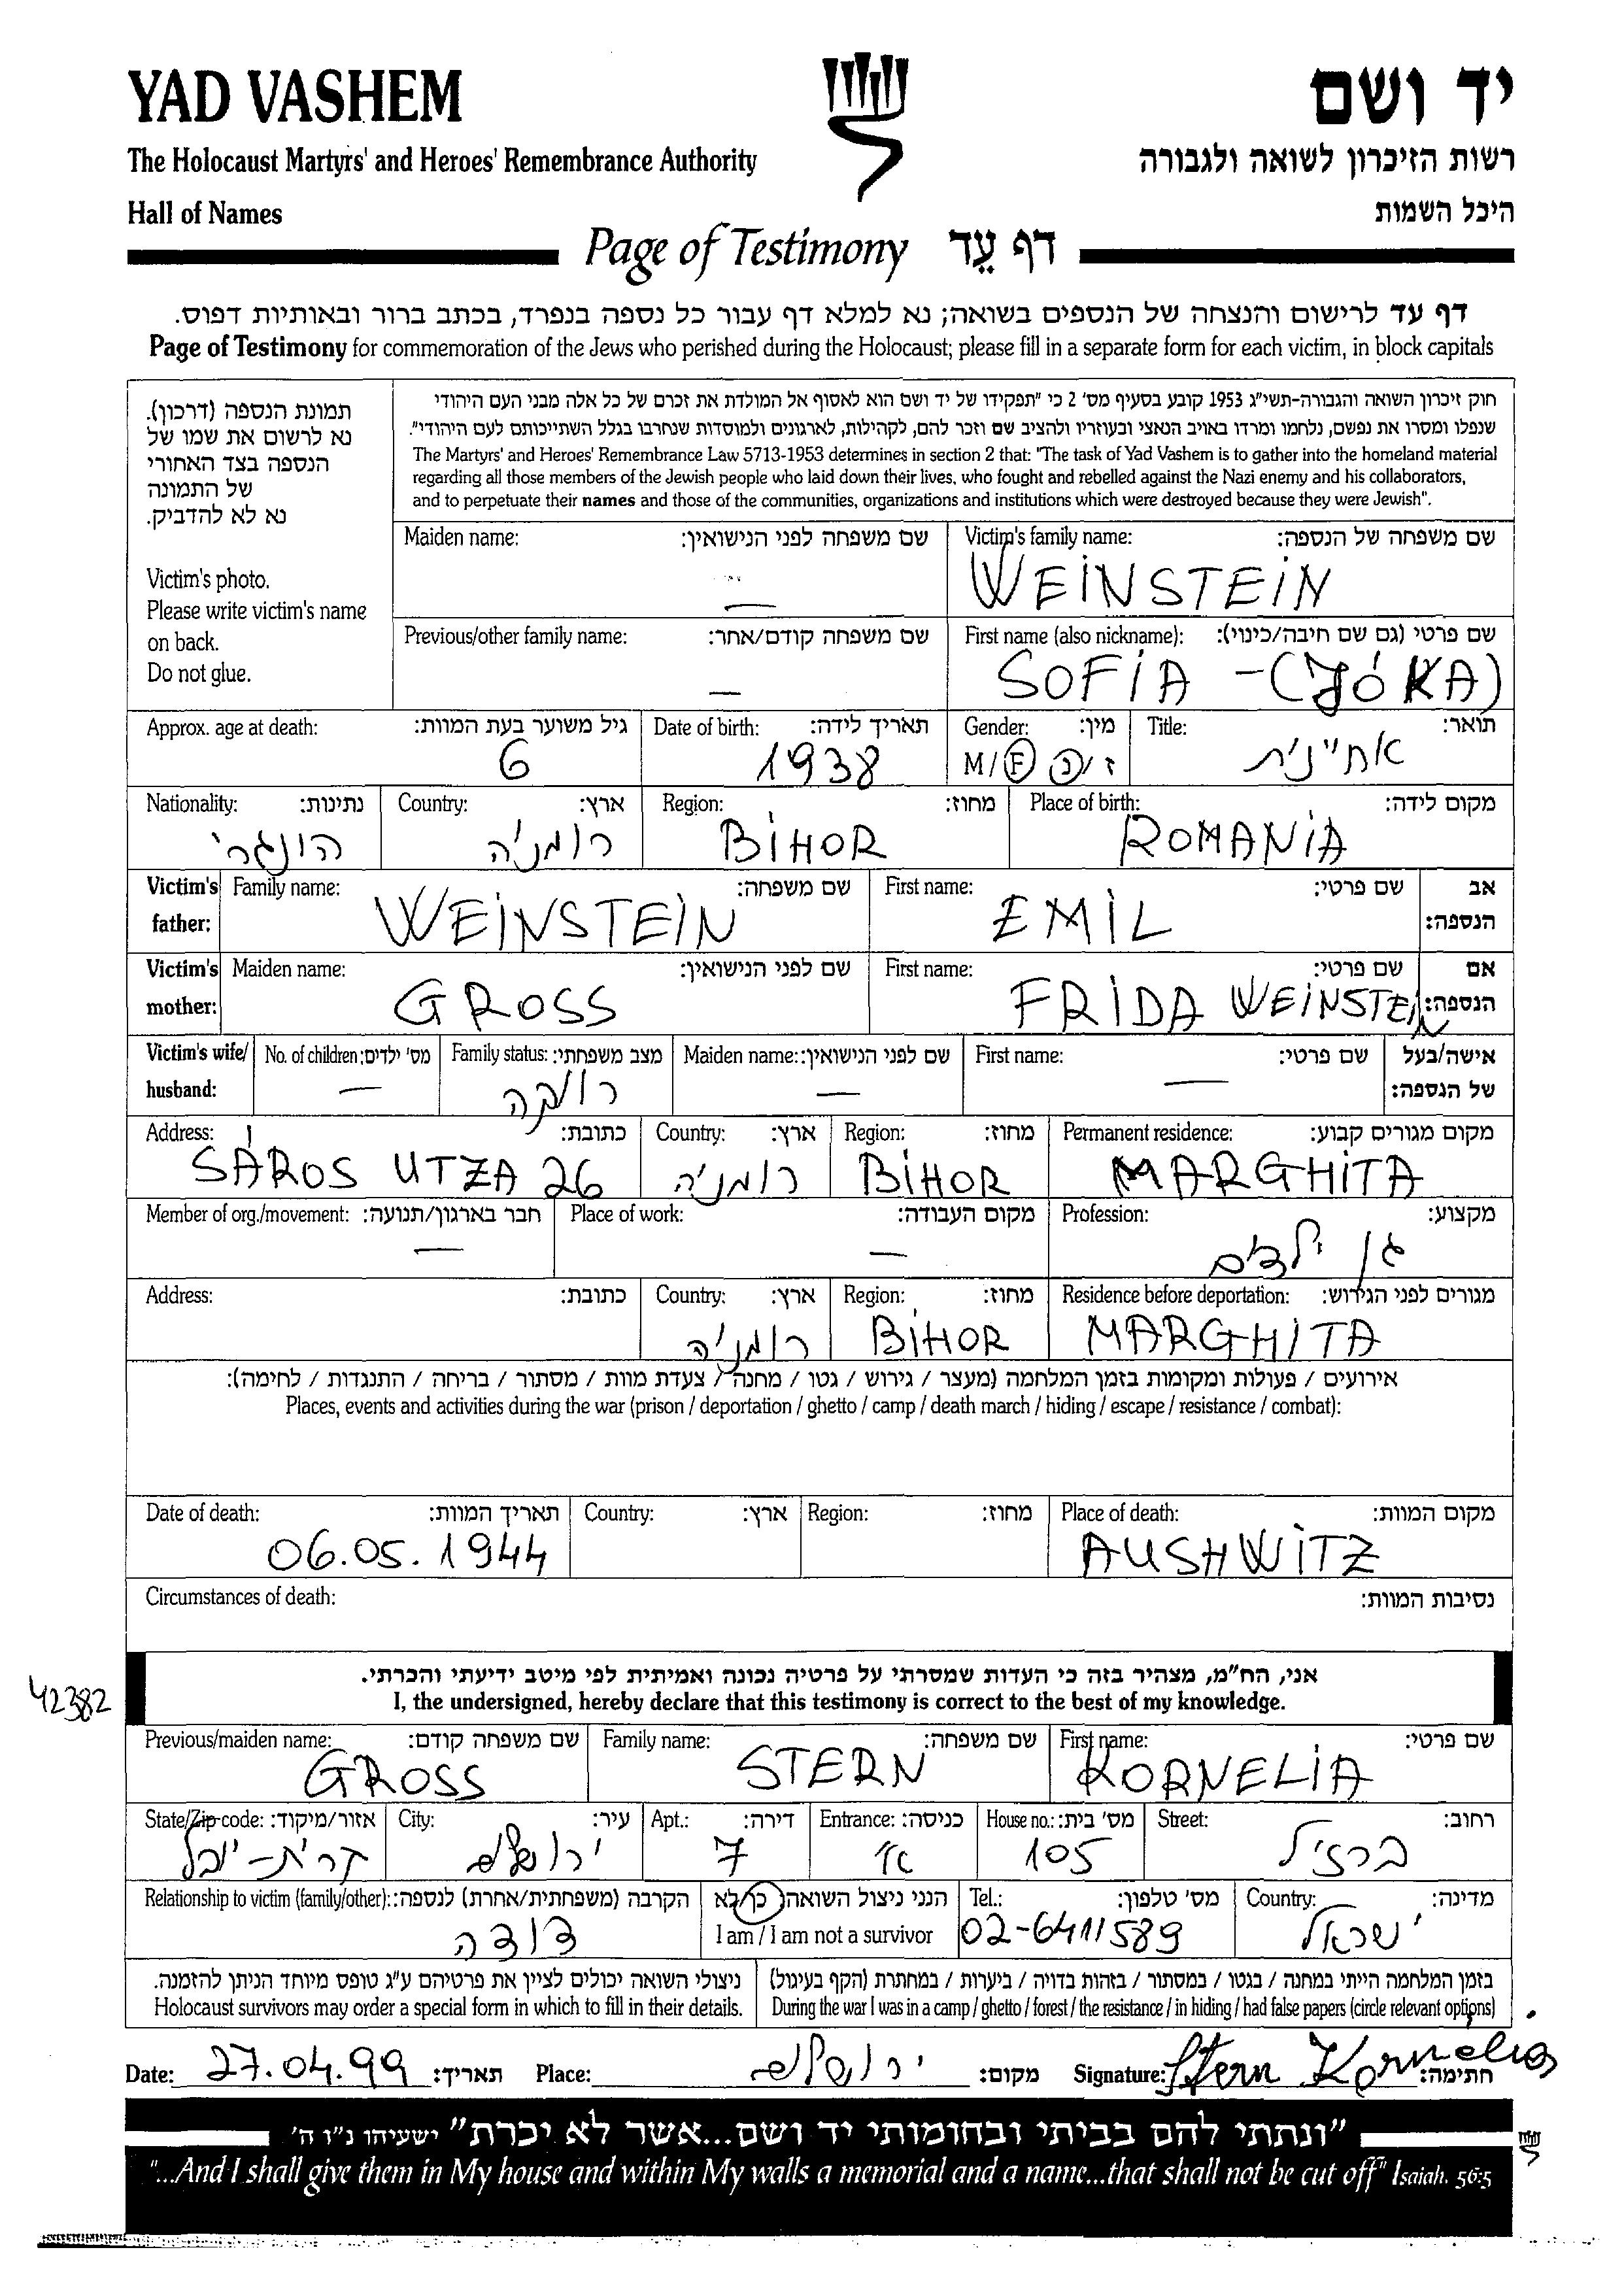 YAD VASHEM
יד ושם
The Holocaust Martyrs' and Heroes' Remembrance Authority
רשות הזיכרון לשואה ולגבורה
Hall of Names
היכל השמות
Page of Testimony דף עֵד
דף עד לרישום והנצחה של הנספים בשואה; נא למלא דף עבור כל נספה בנפרד, בכתב ברור ובאותיות דפוס.
Page of Testimony for commemoration of the Jews who perished during the Holocaust; please fill in a separate form for each victim, in block capitals
תמונת הנספה (דרכון).
נא לרשום את שמו של
הנספה בצד האחורי
של התמונה
נא לא להדביק.
Victim's photo.
Please write victim's name
on back.
Do not glue.
חוק זיכרון השואה והגבורה-תשי"ג 1953 קובע בסעיף מס' 2 כי "תפקידו של יד ושם הוא לאסוף אל המולדת את זכרם של כל אלה מבני העם היהודי
שנפלו ומסרו את נפשם, נלחמו ומרדו באויב הנאצי ובעוזריו ולהציב שם וזכר להם, לקהילות, לארגונים ולמוסדות שנחרבו בגלל השתייכותם לעם היהודי".
The Martyrs' and Heroes' Remembrance Law 5713-1953 determines in section 2 that: "The task of Yad Vashem is to gather into the homeland material
regarding all those members of the Jewish people who laid down their lives, who fought and rebelled against the Nazi enemy and his collaborators,
and to perpetuate their names and those of the communities, organizations and institutions which were destroyed because they were Jewish".
Maiden name: שם משפחה לפני הנישואין: Victim's family name: שם משפחה של הנספה:
— WEINSTEIN
Previous/other family name: שם משפחה קודם/אחר: First name (also nickname): שם פרטי (גם שם חיבה/כינוי):
— SOFIA - (JÓKA)
Approx. age at death: גיל משוער בעת המוות: Date of birth: תאריך לידה: Gender: מין: Title: תואר:
6 1938 M / F ז / נ אחיינית
Nationality: נתינות: Country: ארץ: Region: מחוז: Place of birth: מקום לידה:
הונגרי רומניה BIHOR ROMANIA
Victim's father: Family name: שם משפחה: First name: שם פרטי: אב הנספה:
WEINSTEIN EMIL
Victim's mother: Maiden name: שם לפני הנישואין: First name: שם פרטי: אם הנספה:
GROSS FRIDA WEINSTEIN
Victim's wife/ husband: No. of children: מס' ילדים: Family status: מצב משפחתי: Maiden name: שם לפני הנישואין: First name: שם פרטי: אישה/בעל של הנספה:
— רווקה — —
Address: כתובת: Country: ארץ: Region: מחוז: Permanent residence: מקום מגורים קבוע:
SÁROS UTZA 26 רומניה BIHOR MARGHITA
Member of org./movement: חבר בארגון/תנועה: Place of work: מקום העבודה: Profession: מקצוע:
— — גן ילדים
Address: כתובת: Country: ארץ: Region: מחוז: Residence before deportation: מגורים לפני הגירוש:
רומניה BIHOR MARGHITA
אירועים / פעולות ומקומות בזמן המלחמה (מעצר / גירוש / גטו / מחנה / צעדת מוות / מסתור / בריחה / התנגדות / לחימה):
Places, events and activities during the war (prison / deportation / ghetto / camp / death march / hiding / escape / resistance / combat):
Date of death: תאריך המוות: Country: ארץ: Region: מחוז: Place of death: מקום המוות:
06.05.1944 AUSHWITZ
Circumstances of death: נסיבות המוות:
אני, הח"מ, מצהיר בזה כי העדות שמסרתי על פרטיה נכונה ואמיתית לפי מיטב ידיעתי והכרתי.
I, the undersigned, hereby declare that this testimony is correct to the best of my knowledge.
42382
Previous/maiden name: שם משפחה קודם: Family name: שם משפחה: First name: שם פרטי:
GROSS STERN KORNELIA
State/Zip code: אזור/מיקוד: City: עיר: Apt.: דירה: Entrance: כניסה: House no.: מס' בית: Street: רחוב:
קרית-יובל ירושלים 7 א 105 ברזיל
Relationship to victim (family/other): הקרבה (משפחתית/אחרת) לנספה: הנני ניצול השואה: כן/לא Tel.: מס' טלפון: Country: מדינה:
I am / I am not a survivor
דודה 02-6411589 ישראל
ניצולי השואה יכולים לציין את פרטיהם ע"ג טופס מיוחד הניתן להזמנה. בזמן המלחמה הייתי במחנה / בגטו / במסתור / בזהות בדויה / ביערות / במחתרת (הקף בעיגול)
Holocaust survivors may order a special form in which to fill in their details. During the war I was in a camp / ghetto / forest / the resistance / in hiding / had false papers (circle relevant options)
Date: 27.04.99 תאריך: Place: ירושלים מקום: Signature: Stern Kornelia חתימה:
"ונתתי להם בביתי ובחומותי יד ושם...אשר לא יכרת" ישעיהו נ"ו ה'
"...And I shall give them in My house and within My walls a memorial and a name...that shall not be cut off" Isaiah. 56:5